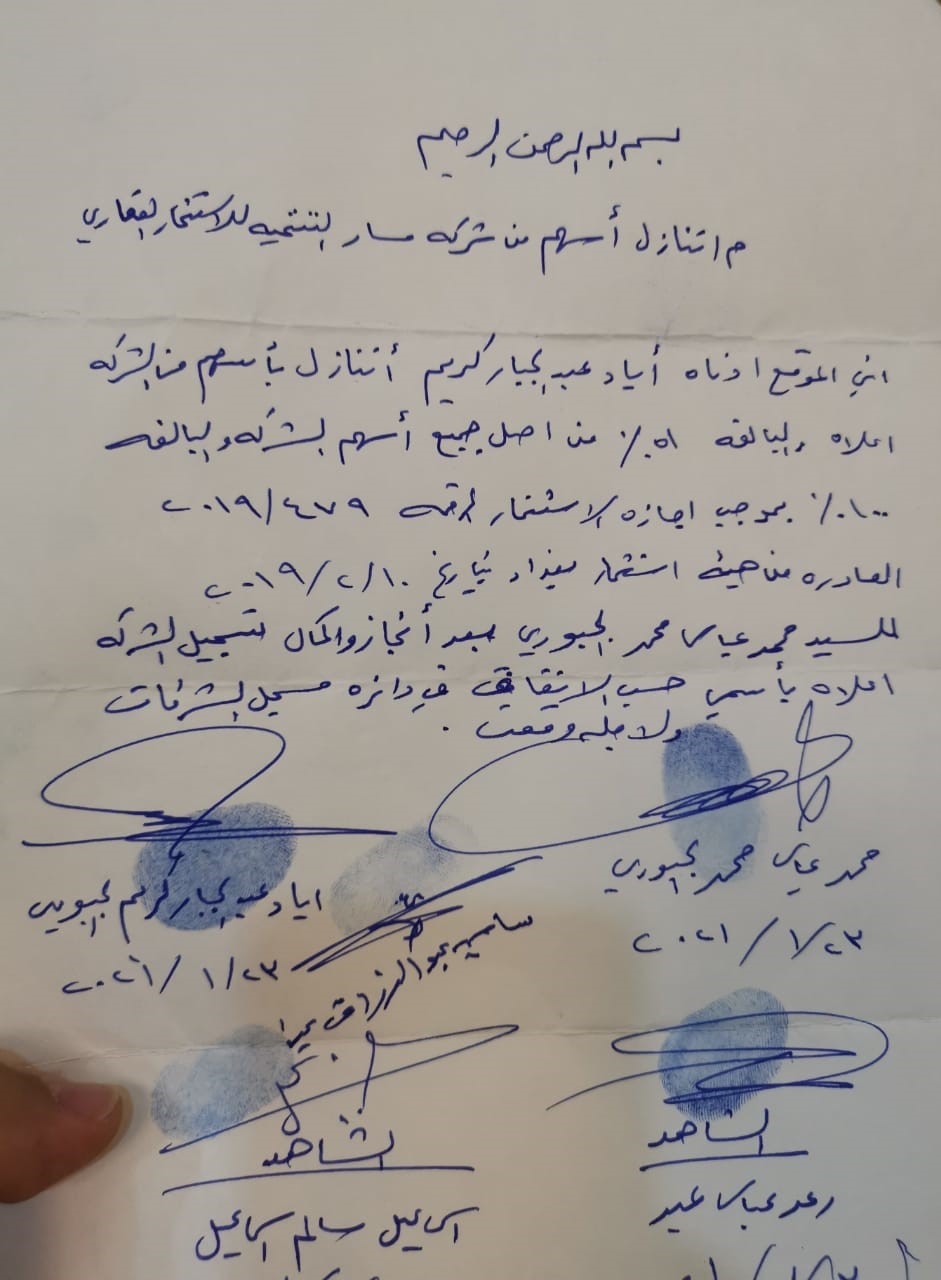 بسم الله الرحمن الرحيم
م/ تنازل أسهم من شركه مسار التنميه للاستثمار العقاري
اني الموقع ادناه أياد عبد الجبار كريم أتنازل بأسهم من الشركه
اعلاه والبالغه ٥١٪ من اصل جميع أسهم الشركه والبالغه
١٠٠٪ بموجب اجازه الاستثمار المرقمه ٤٧٩/٢٠١٩
الصادره من هيئه استثمار بغداد بتاريخ ٢٠١٩/٢/١٠
للسيد محمد عباس محمد الجبوري بعد أنجاز واكمال تسجيل الشركه
اعلاه بأسمي حسب الاتفاق في دائره مسجل الشركات
ولاجله وقعت .
محمد عباس محمد الجبوري
٢٠٢١/١/٢٣
اياد عبد الجبار كريم الجبوري
٢٠٢١/١/٢٣
عبد الرزاق
الشاهد
رعد عباس
الشاهد
اسماعيل سالم اسماعيل